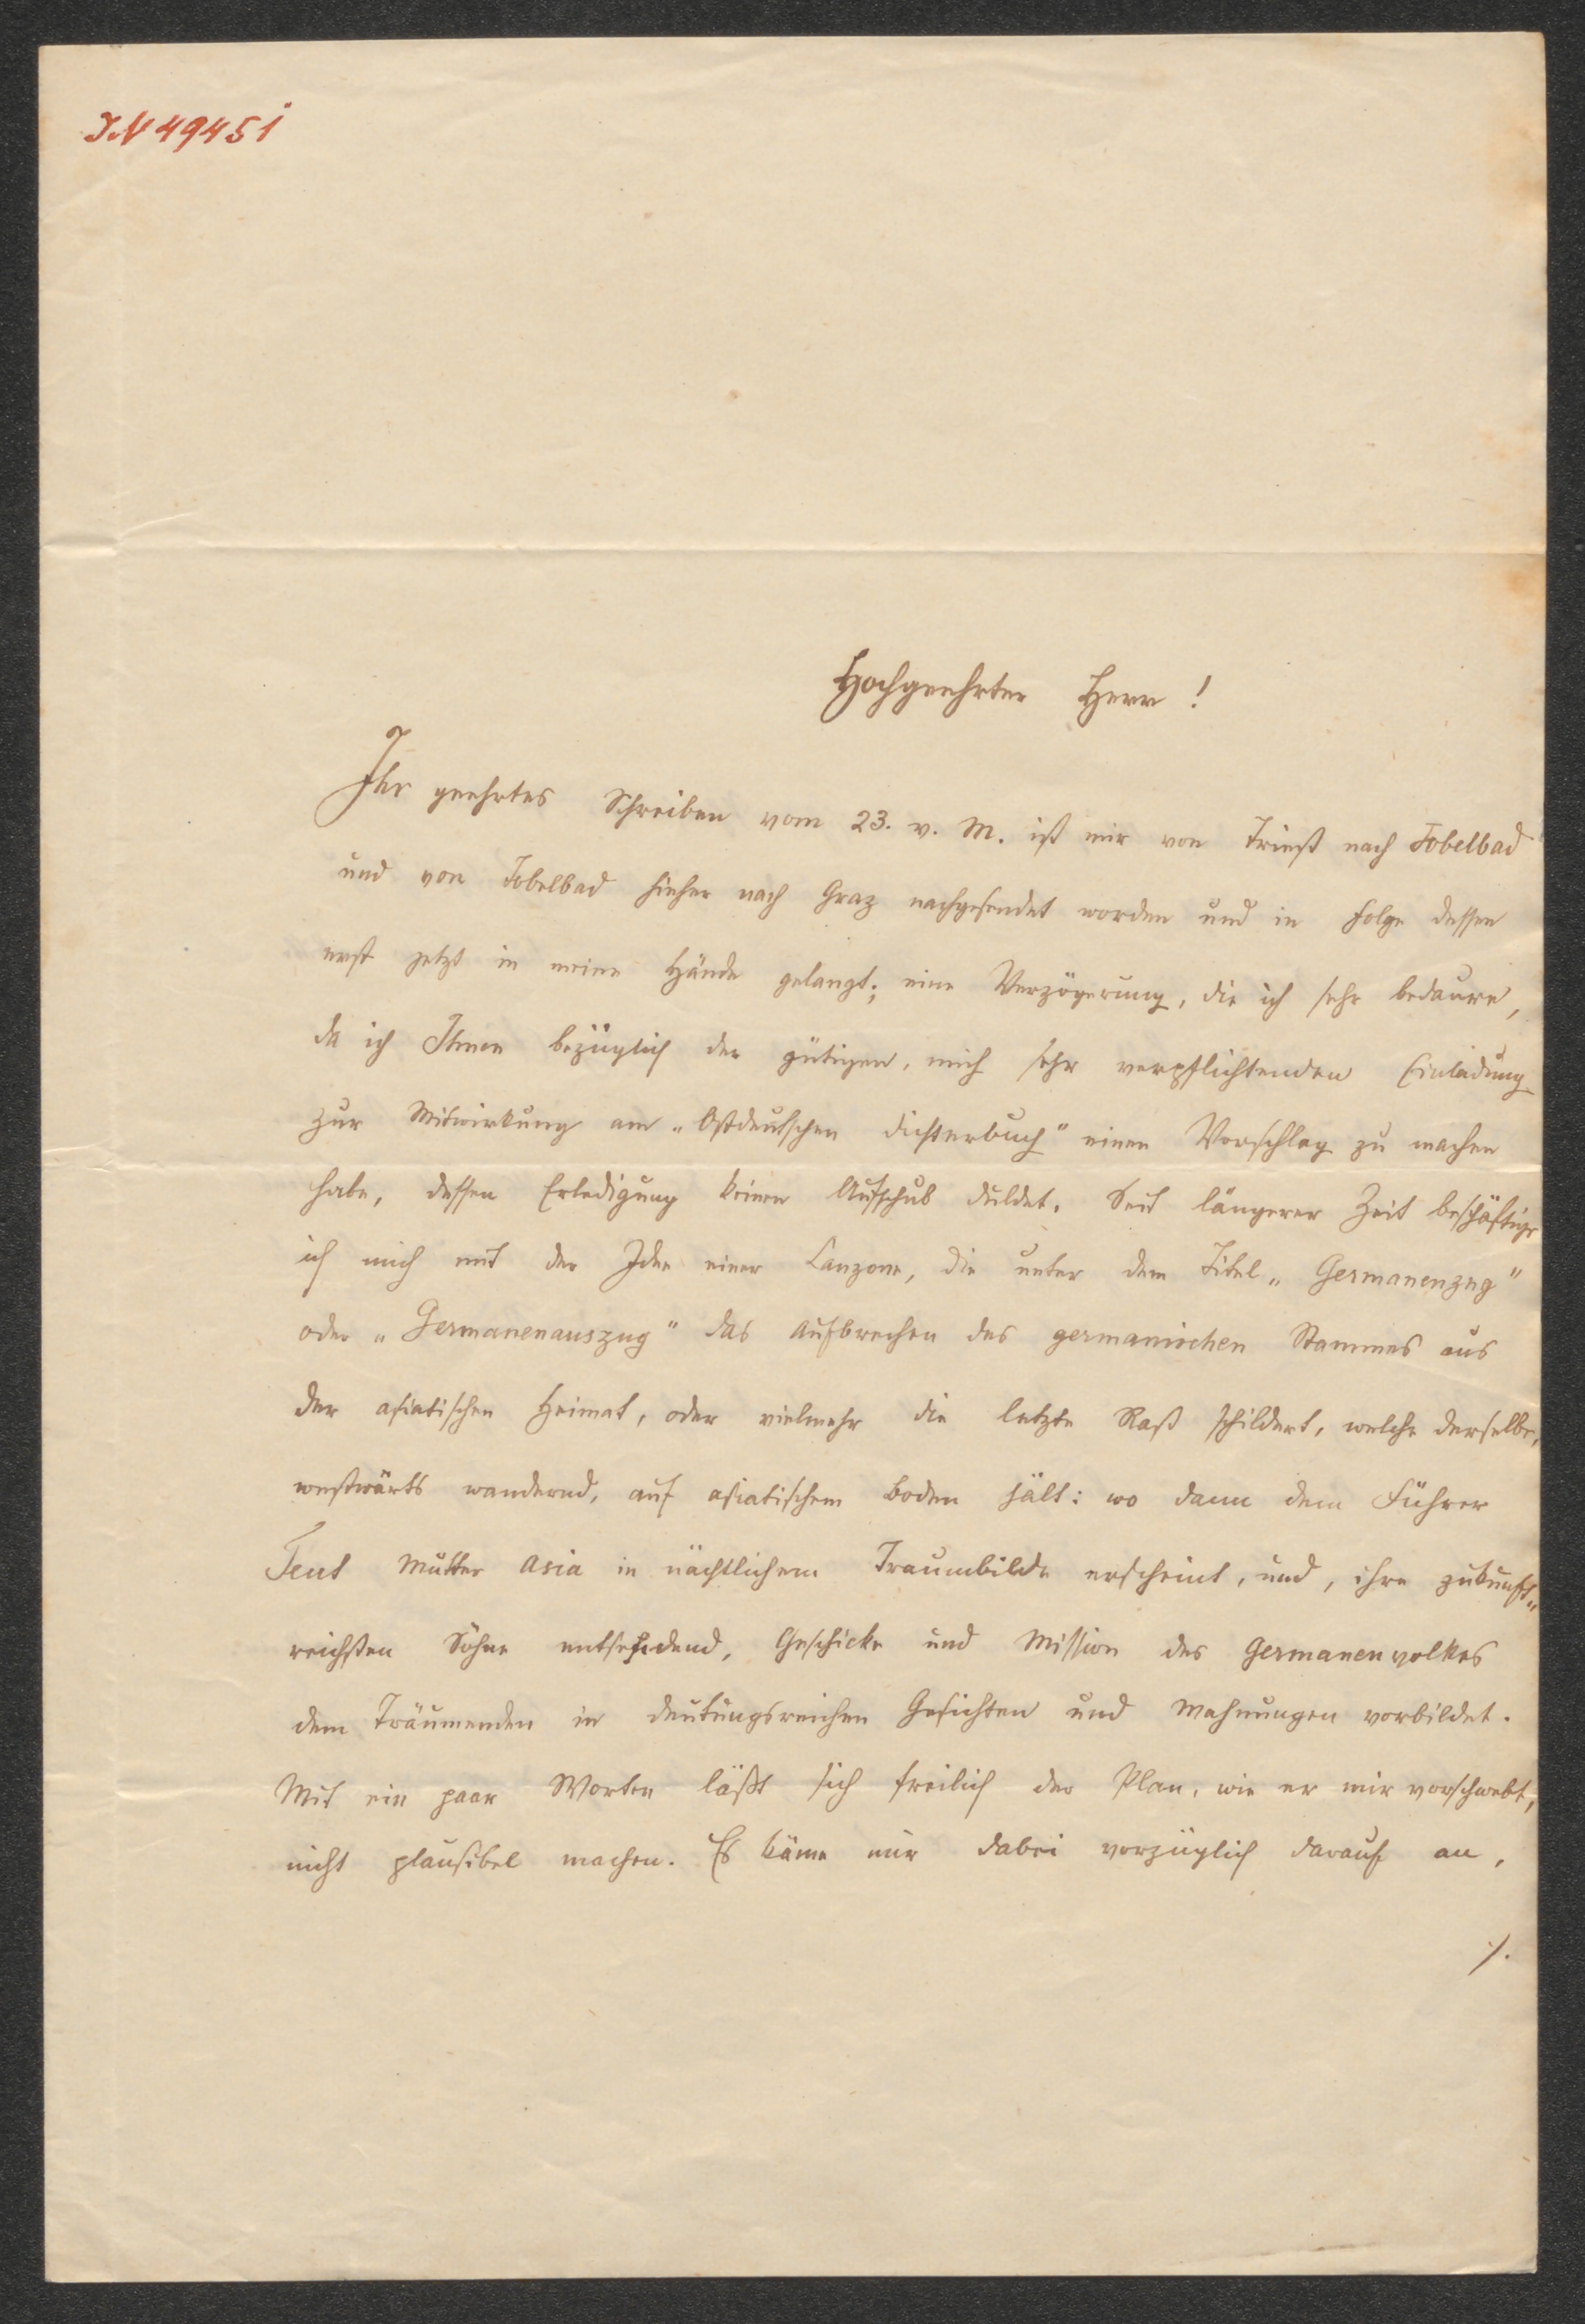 IN 49451
Hochgeehrter Herr!
Ihr geehrtes Schreiben vom 23. v. M. ist mir von Triest nach Tobelbad
und von Tobelbad hieher nach Graz nachgesendet worden und in Folge dessen
erst jetzt in meine Hände gelangt; eine Verzögerung, die ich sehr bedaure,
da ich Ihnen bezüglich der gütigen, mich sehr verpflichtenden Einladung
zur Mitwirkung am „Ostdeutschen Dichterbuch" einen Vorschlag zu machen
habe, dessen Erledigung keinen Aufschub duldet. Seit längerer Zeit beschäftige
ich mich mit der Idee einer Canzone, die unter dem Titel „Germanenzug"
oder „Germanenauszug" das Aufbrechen des germanischen Stammes aus
der asiatischen Heimat, oder vielmehr die letzte Rast schildert, welche derselbe,
westwärts wandernd, auf asiatischem Boden hält: wo dann dem Führer
Teut Mutter Asia in nächtlichem Traumbilde erscheint, und, ihre zukunft„
reichsten Söhne entsendend, Geschicke und Mission des Germanenvolkes
dem Träumenden in deutungsreichen Gesichten und Mahnungen vorbildet.
Mit ein paar Worten läßt sich freilich der Plan, wie er mir vorschwebt,
nicht plausibel machen. Es käme mir dabei vorzüglich darauf an,
./.